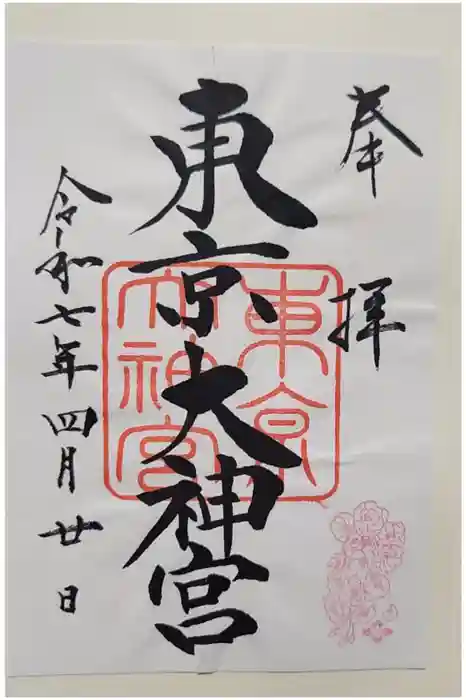 奉拝
東京大神宮
東京大神宮
令和七年四月廿日